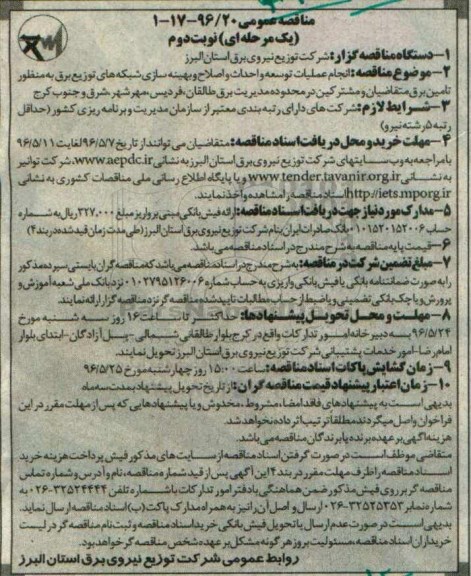 مناقصه عمومی ۹۶/۲۰-۱۷-۱
(یک مرحله ای) نوبت دوم
۱-دستگاه مناقصه گزار: شرکت توزیع نیروی برق استان البرز
۲-موضوع مناقصه: انجام عملیات توسعه و احداث و اصلاح و بهینه سازی شبکه های توزیع برق به منظور
تامین برق متقاضیان و مشترکین در محدوده مدیریت برق طالقان، فردیس، مهرشهر، شرق و جنوب کرج
۳-شرایط لازم: شرکت های دارای رتبه بندی معتبر از سازمان مدیریت و برنامه ریزی کشور (حداقل
رتبه ۵ رشته نیرو)
۴-مهلت خرید و محل دریافت اسناد مناقصه: متقاضیان می توانند از تاریخ ۹۶/۵/۷ لغایت ۹۶/۵/۱۱
با مراجعه به وب سایتهای شرکت توزیع نیروی برق استان البرز به نشانی www.aepdc.ir، شرکت توانیر
به نشانی www.tender.tavanir.org.ir و یا پایگاه اطلاع رسانی ملی مناقصات کشوری به نشانی
http://iets.mporg.ir اسناد مناقصه را مشاهده و اخذ نمایند.
۵-مدارک مورد نیاز جهت دریافت اسناد مناقصه: ارائه فیش بانکی مبنی بر واریز مبلغ ۳۲۷,۰۰۰ ریال به شماره
حساب ۰۱۰۱۵۲۰۱۵۲۰۰۶ بانک صادرات ایران بنام شرکت توزیع نیروی برق استان البرز (طی مدت زمان قید شده در بند ۴)
۶-قیمت پایه مناقصه به شرح مندرج در اسناد مناقصه می باشد.
۷-مبلغ تضمین شرکت در مناقصه: به شرح مندرج در اسناد مناقصه می باشد که مناقصه گران بایستی سپرده مذکور
را به صورت ضمانتنامه بانکی یا فیش بانکی واریزی به حساب شماره ۰۱۰۲۷۹۵۱۲۶۰۰۶ نزد بانک ملی شعبه آموزش و
پرورش و یا چک بانکی تضمینی و یا ضبط از حساب مطالبات تایید شده مناقصه گر نزد مناقصه گزار ارائه نمایند.
۸-مهلت و محل تحویل پیشنهادها: حداکثر تا ساعت ۱۶ روز سه شنبه مورخ
۹۶/۵/۲۴ به دبیرخانه امور تدارکات واقع در کرج بلوار طالقانی شمالی-پیل آزادگان-ابتدای بلوار
امام رضا-امور خدمات پشتیبانی شرکت توزیع نیروی برق استان البرز تحویل نمایند.
۹-زمان گشایش پاکات اسناد مناقصه: ساعت ۱۵:۰۰ روز چهارشنبه مورخ ۹۶/۵/۲۵
۱۰-زمان اعتبار پیشنهاد قیمت مناقصه گران: از تاریخ تحویل پیشنهاد بمدت سه ماه
بدیهی است به پیشنهادهای فاقد امضا، مشروط، مخدوش و یا پیشنهادهایی که پس از مهلت مقرر در این
فراخوان واصل میگردند مطلقا ترتیب اثر داده نخواهد شد.
هزینه آگهی بر عهده برنده یا برندگان مناقصه می باشد.
متقاضی موظف است در صورت گرفتن اسناد مناقصه از سایت های مذکور فیش پرداخت هزینه خرید
اسناد مناقصه را ظرف مهلت مقرر در بند ۴ این آگهی پس از قید شماره مناقصه، نام و آدرس و شماره تماس
مناقصه گر بر روی فیش مذکور ضمن هماهنگی با دفتر امور تدارکات با شماره تلفن ۳۲۵۲۴۴۴۴-۰۲۶ به
شماره نمابر ۳۲۵۲۵۳۵۳-۰۲۶ ارسال و اصل آن را نیز به همراه مدارک پاکت (ب) اسناد مناقصه ارسال نماید.
بدیهی است در صورت عدم ارسال یا تحویل فیش بانکی خرید اسناد مناقصه و ثبت نام مناقصه گر در لیست
خریداران اسناد مناقصه، مسئولیت بروز هر گونه مشکل بر عهده شخص مناقصه گر خواهد بود.
روابط عمومی شرکت توزیع نیروی برق استان البرز